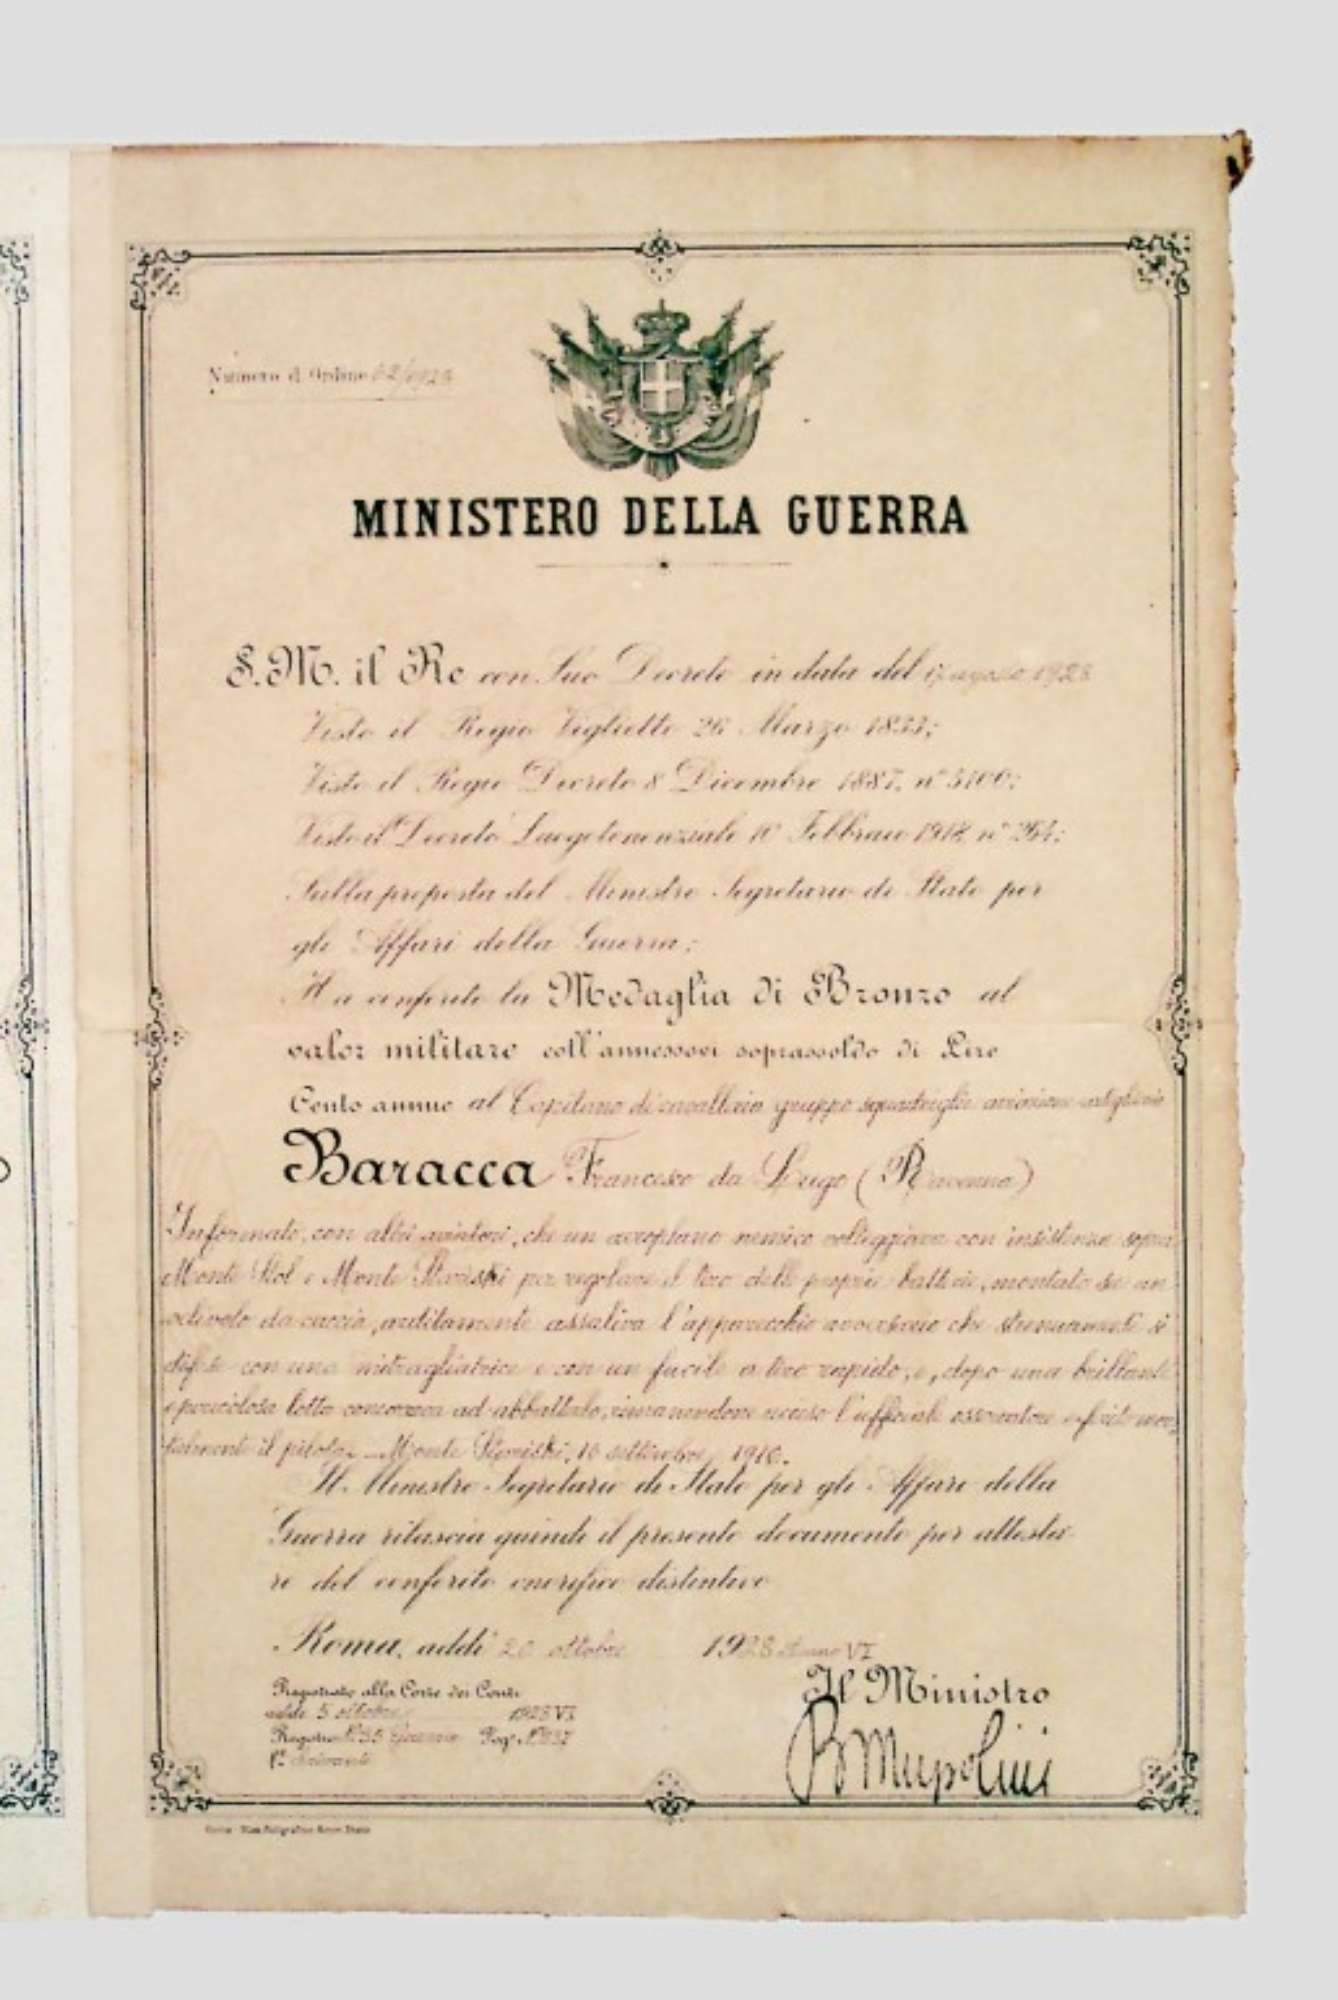 Numero d'Ordine 62/1928
MINISTERO DELLA GUERRA
S. M. il Re con Suo Decreto in data del agosto 1928
Visto il Regio Viglietto 26 Marzo 1833;
Visto il Regio Decreto 8 Dicembre 1887, n° 5100;
Visto il Decreto Luogotenenziale 10 Febbraio 1918, n° 264;
Sulla proposta del Ministro Segretario di Stato per
gli Affari della Guerra;
Ha conferito la Medaglia di Bronzo al
valor militare coll'annessovi soprassoldo di Lire
Cento annue al Capitano di cavalleria gruppo squadriglie aviazione artiglieria
Baracca Francesco da Lugo (Ravenna)
Informato, con altri aviatori, che un aeroplano nemico volteggiava con insistenza sopra
Monte Stol e Monte per regolare il tiro delle proprie batterie, montato su un
velivolo da caccia, arditamente assaliva l'apparecchio avversario che strenuamente si
difese con una mitragliatrice e con un fucile a tiro rapido, e, dopo una brillante
e pericolosa lotta concorreva ad abbatterlo, rimanendone ucciso l'ufficiale osservatore e ferito mor-
talmente il pilota. Monte 16 settembre 1916.
Il Ministro Segretario di Stato per gli Affari della
Guerra rilascia quindi il presente documento per attesta
re del conferito onorifico distintivo
Roma, addì 20 ottobre 1928 Anno VI
Il Ministro
Registrato alla Corte dei Conti
addì 5 ottobre 1928 VI
Registro N° 35 Guerra Fog°
B Mussolini